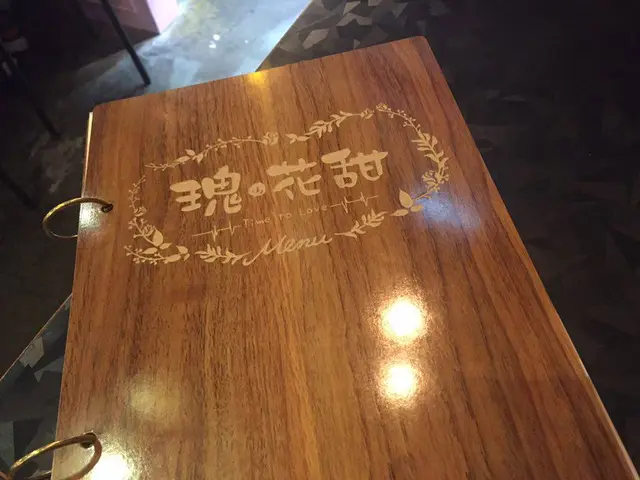 瑰の花甜
Time to Love
Menu